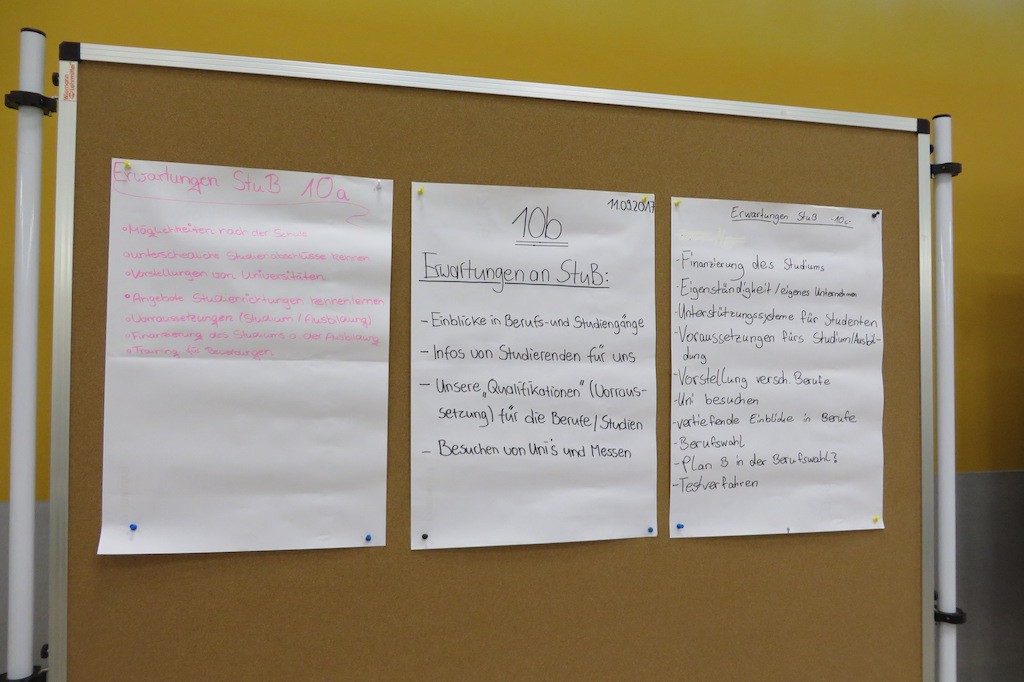 Erwartungen StuB 10a
Möglichkeiten nach der Schule
unterschiedliche Studienabschlüsse kennen
Vorstellungen von Universitäten
Angebote Studienrichtungen kennenlernen
Vorraussetzungen (Studium / Ausbildung)
Finanzierung des Studiums o. der Ausbildung
Training für Bewerbungen
11.09.2017
10b
Erwartungen an StuB:
- Einblicke in Berufs- und Studiengänge
- Infos von Studierenden für uns
- Unsere „Qualifikationen" (Vorraus-
setzung) für die Berufe / Studien
- Besuchen von Uni's und Messen
Erwartungen StuB 10c
- Finanzierung des Studiums
- Eigenständigkeit / eigenes Unternehmen
- Unterstützungssysteme für Studenten
- Voraussetzungen fürs Studium/Ausbil-
dung
- Vorstellung versch. Berufe
- Uni besuchen
- vertiefende Einblicke in Berufe
- Berufswahl
- Plan B in der Berufswahl?
- Testverfahren